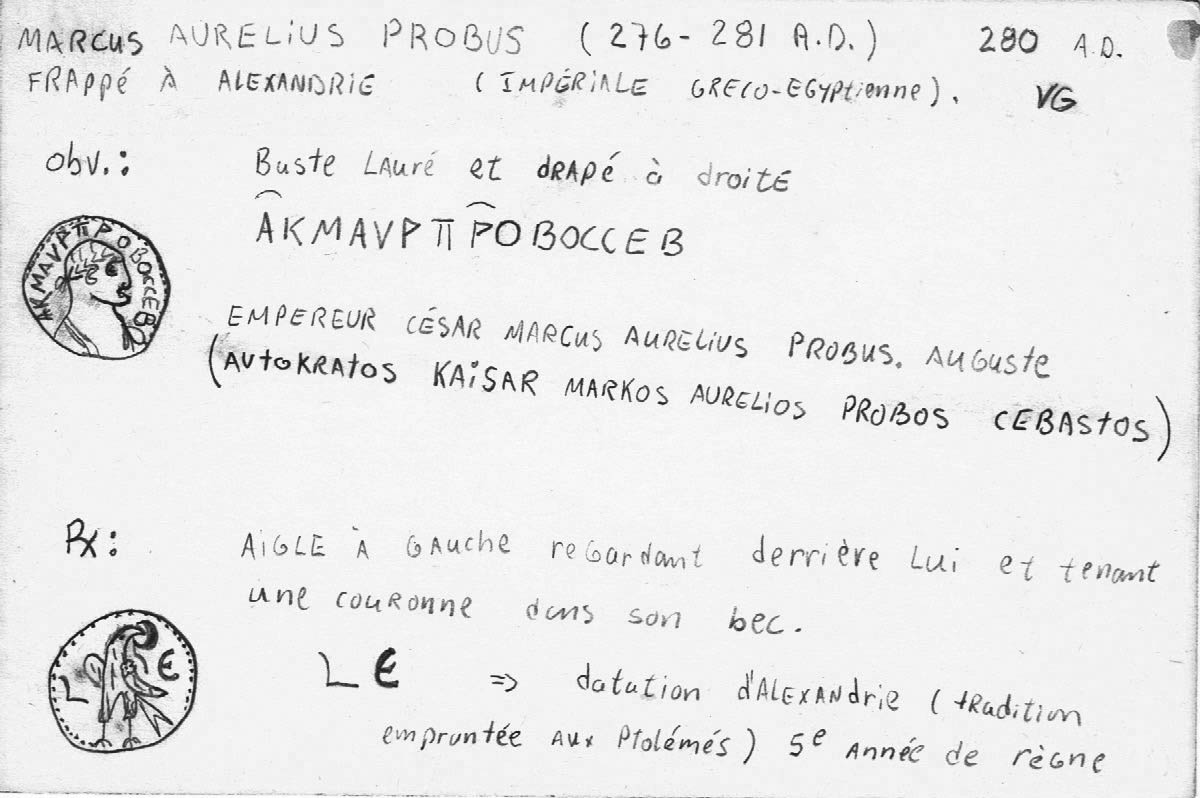 MARCUS AURELIUS PROBUS (276-281 A.D.) 280 A.D.
FRAppé À ALEXANDRIE (IMPÉRIALE GRECO-EGYPtienne). VG
obv.: Buste LAuré et dRAPé à droite
ΑΚΜΑVΡΠΡΟΒΟCCΕΒ
ΑΚΜΑVΡΠΡΟΒΟCCΕΒ
EMPEREUR CÉSAR MARCUS AURELIUS PROBUS. AUGUSTE
(AUtOKRAtOS KAISAR MARKOS AURELIOS PROBOS CEBAStOS)
Rx: AIGLE À GAuche reGardant derrière Lui et tenant
une couronne dans son bec.
L Є
L Є => datation d'ALEXANdrie (tRadition
empruntée Aux Ptolémés) 5e ANNée de règne